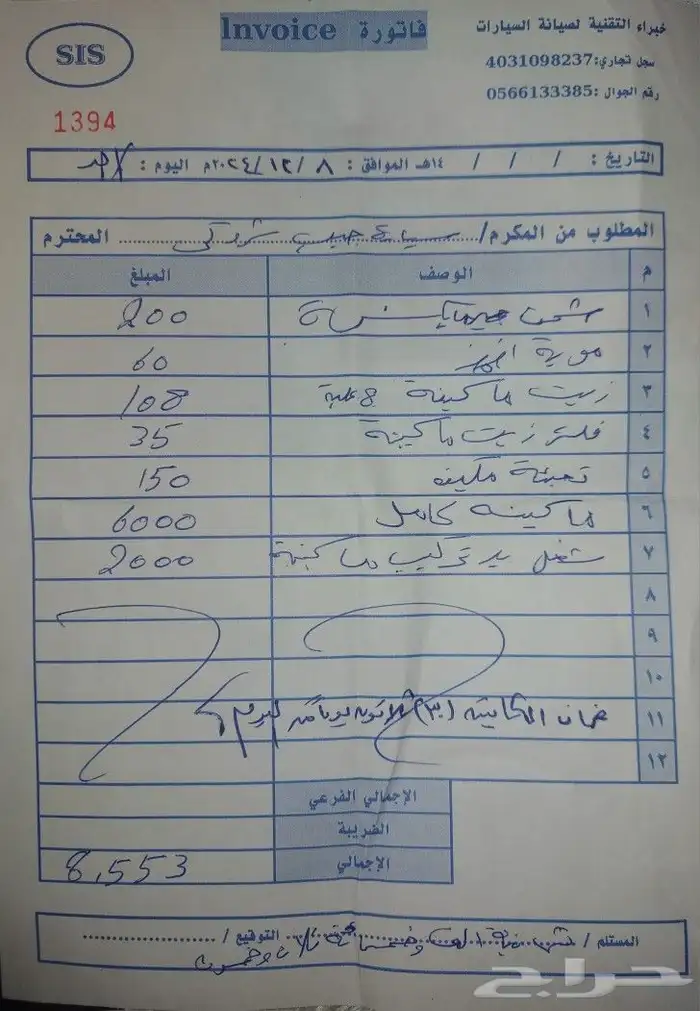 خبراء التقنية لصيانة السيارات
فاتورة Invoice
SIS
سجل تجاري:4031098237
رقم الجوال :0566133385
1394
التاريخ : / / / ١٤هـ الموافق : ٨ /١٢ /٢٠٢٤م اليوم : الأحد
المطلوب من المكرم/ المحترم
م الوصف المبلغ
١ شحن 200
٢ موية 60
٣ زيت ماكينة 8 علبة 108
٤ فلتر زيت ماكينة 35
٥ تعبئة مكيف 150
٦ ماكينة كامل 6000
٧ شغل يد تركيب ماكينة 2000
٨
٩
١٠
١١ ضمان الماكينة (٣٠) ثلاثون يوما من اليوم
١٢
الإجمالي الفرعي
الضريبة
الإجمالي 8,553
المستلم / ثمانية الف وخمسمائة ثلاث وخمسون التوقيع /
حراج